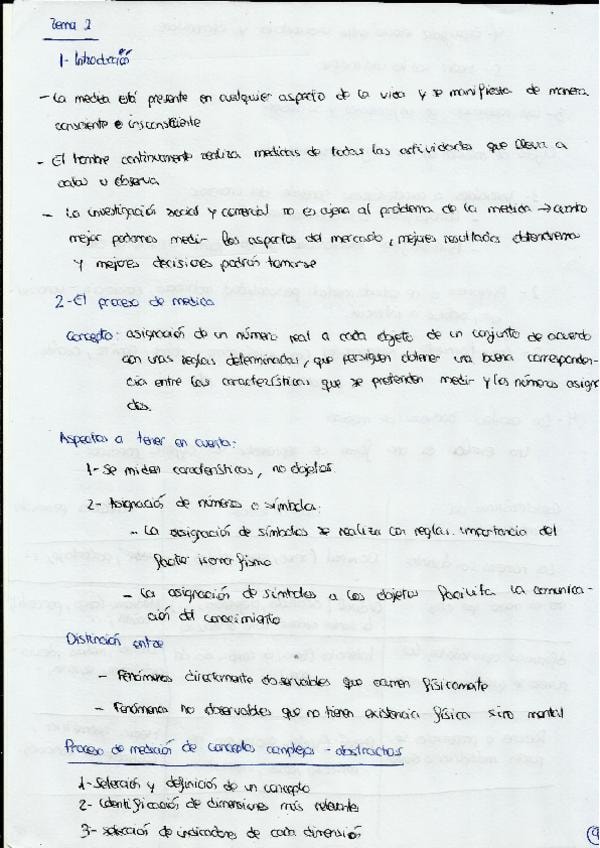 Tema 2
1- Introducción
- La medida está presente en cualquier aspecto de la vida y se manifiesta de manera
consciente e insconsciente
- El hombre continuamente realiza medidas de todas las actividades que lleva a
cabo u observa
- La investigación social y comercial no es ajena al problema de la medida → cuanto
mejor podamos medir los aspectos del mercado, mejores resultados obtendremos
y mejores decisiones podrás tomarse
2- El proceso de medida
Concepto: asignación de un número real a cada objeto de un conjunto de acuerdo
con unas reglas determinadas, que persiguen obtener una buena corresponden-
cia entre las características que se pretenden medir y los números asigna
dos.
Aspectos a tener en cuenta:
1- Se miden características, no objetos
2- Asignación de números o símbolos:
- La asignación de símbolos se realiza con reglas. importancia del
factor isomorfismo
- La asignación de símbolos a los objetos facilita la comunica-
ción del conocimiento
Distinción entre
- Fenómenos directamente observables que ocurren físicamente
- Fenómenos no observables que no tienen existencia física sino mental
Proceso de medición de conceptos complejos - abstractos
1- Selección y definición de un concepto
2- Identificación de dimensiones más relevante
3- selección de indicadores de cada dimensión